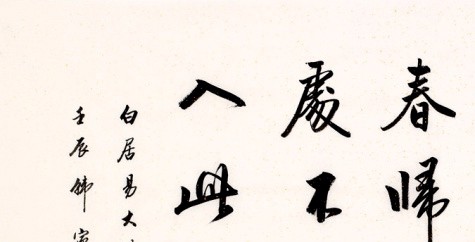 春歸
處不
入此
白居易大
壬辰